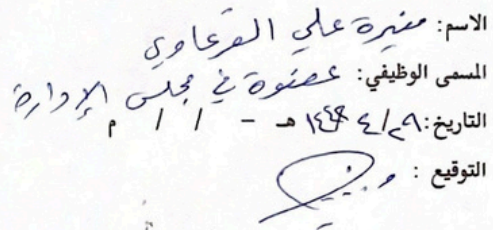 الاسم: منيرة علي القرعاوي
المسمى الوظيفي: عضوة في مجلس الإدارة
التاريخ: ٢٩/٤/ ١٤٤٤هـ - / / م
التوقيع :